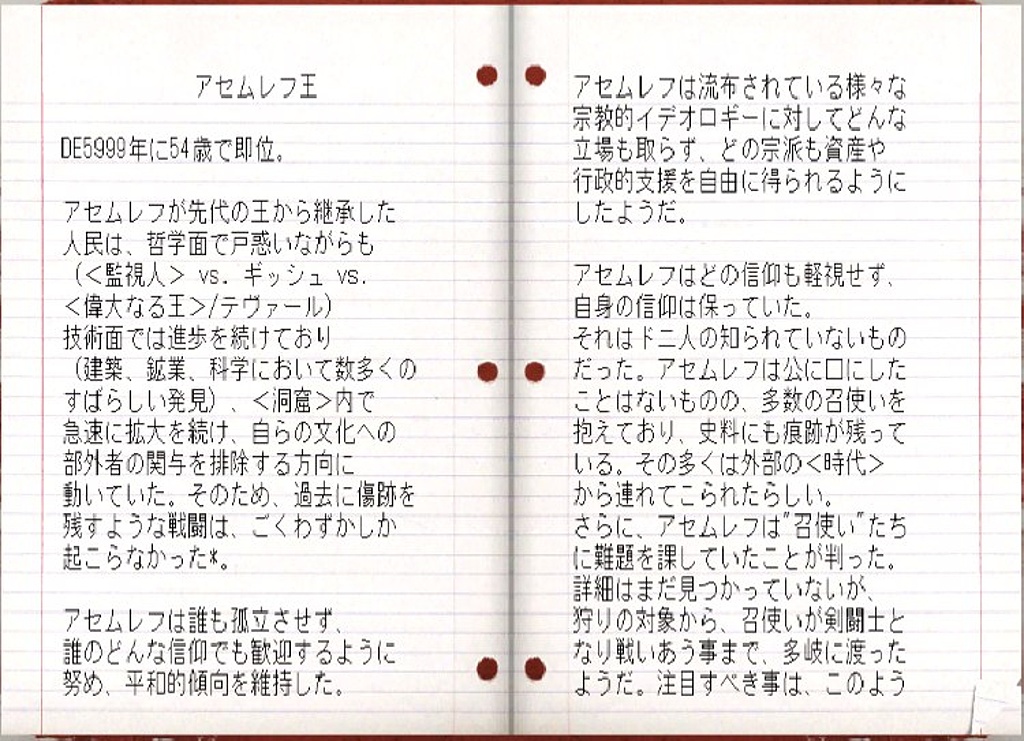 アセムレフ王
DE5999年に54歳で即位。
アセムレフが先代の王から継承した
人民は、哲学面で戸惑いながらも
（＜監視人＞ vs. ギッシュ vs.
＜偉大なる王＞/テヴァール）
技術面では進歩を続けており
（建築、鉱業、科学において数多くの
すばらしい発見）、＜洞窟＞内で
急速に拡大を続け、自らの文化への
部外者の関与を排除する方向に
動いていた。そのため、過去に傷跡を
残すような戦闘は、ごくわずかしか
起こらなかった*。
アセムレフは誰も孤立させず、
誰のどんな信仰でも歓迎するように
努め、平和的傾向を維持した。
アセムレフは流布されている様々な
宗教的イデオロギーに対してどんな
立場も取らず、どの宗派も資産や
行政的支援を自由に得られるように
したようだ。
アセムレフはどの信仰も軽視せず、
自身の信仰は保っていた。
それはドニ人の知られていないもの
だった。アセムレフは公に口にした
ことはないものの、多数の召使いを
抱えており、史料にも痕跡が残って
いる。その多くは外部の＜時代＞
から連れてこられたらしい。
さらに、アセムレフは"召使い"たち
に難題を課していたことが判った。
詳細はまだ見つかっていないが、
狩りの対象から、召使いが剣闘士と
なり戦いあう事まで、多岐に渡った
ようだ。注目すべき事は、このよう